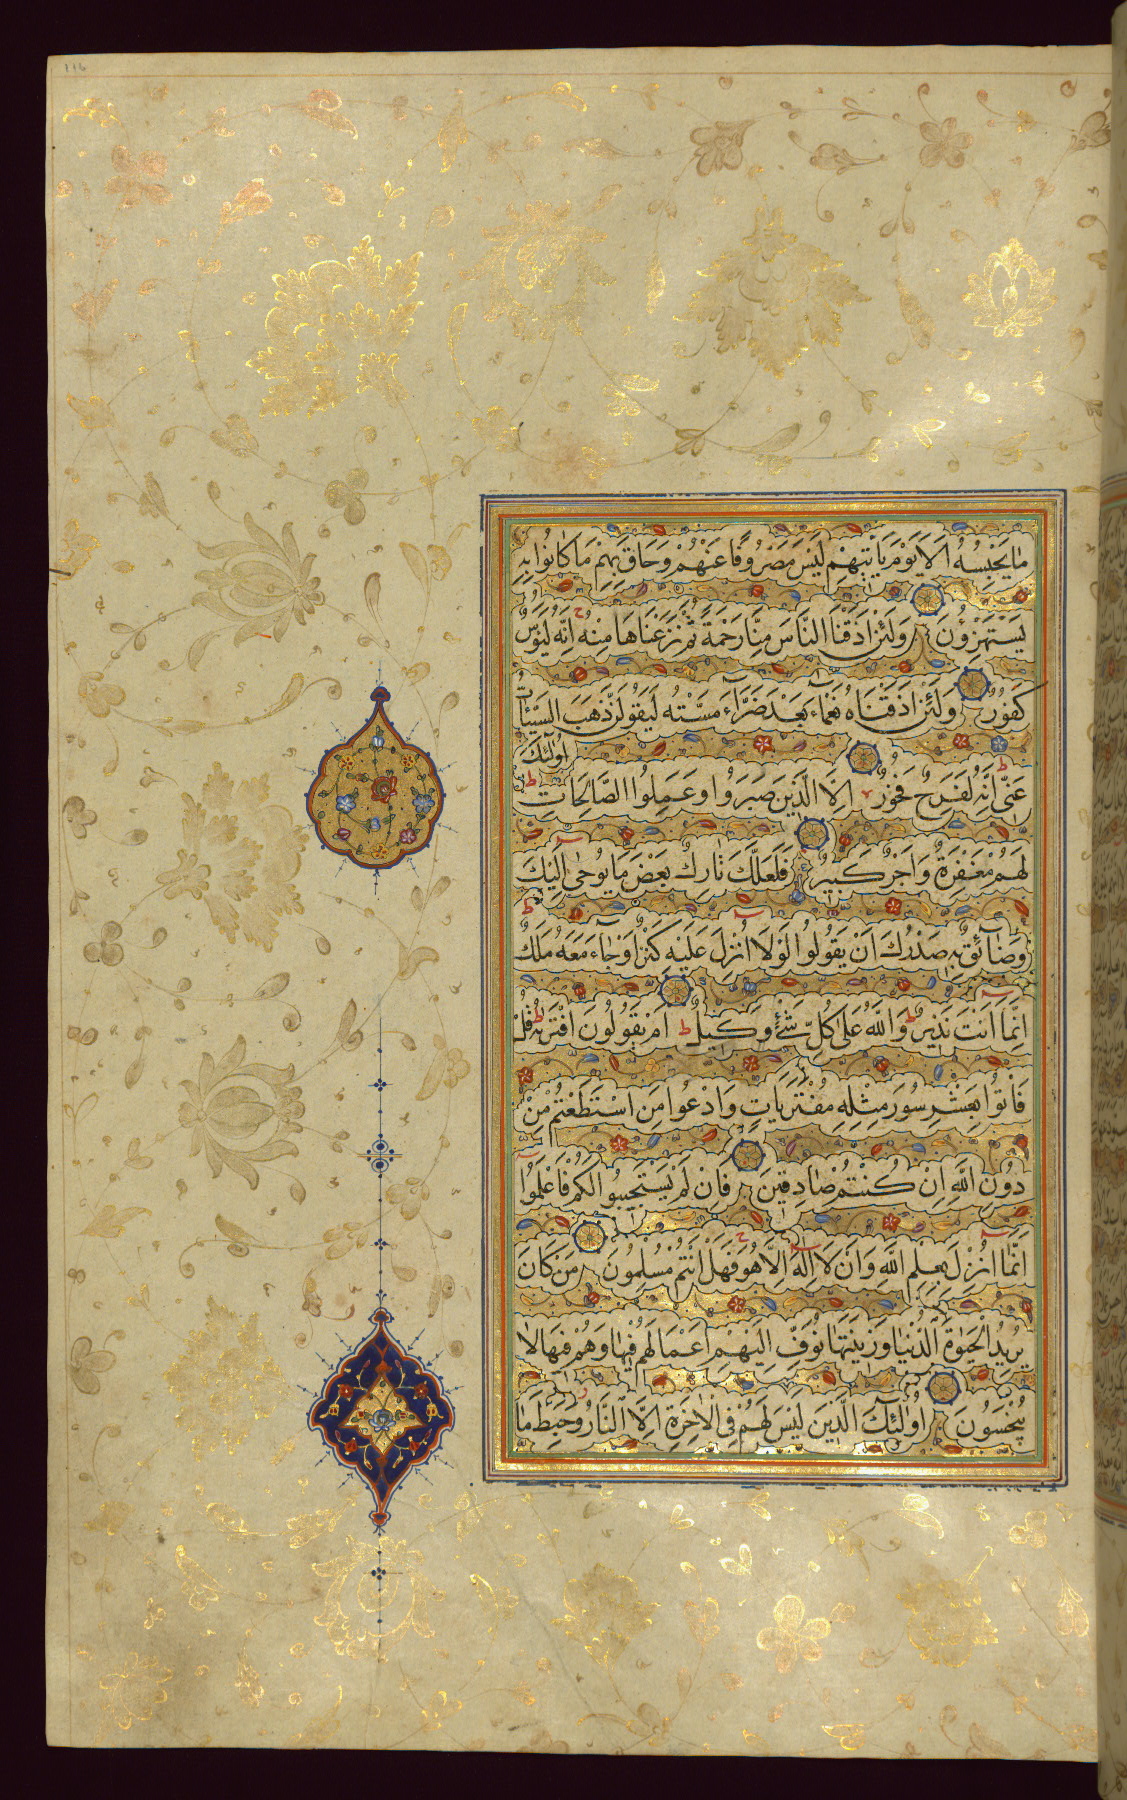 ١١٥
مٰا يَحْبِسُهُ اَلاٰ يَوْمَ يَأْتٖيهِمْ لَيْسَ مَصْرُوفًا عَنْهُمْ وَحَاقَ بِهِمْ مٰا كٰانُوا بِهٖ
يَسْتَهْزِؤُنَ وَلَئِنْ اَذَقْنَا النَّاسَ مِنَّا رَحْمَةً ثُمَّ نَزَعْنَاهَا مِنْهُ اِنَّهُ لَيَؤُسٌ
كَفُورٌ وَلَئِنْ اَذَقْنَاهُ نَعْمَاءَ بَعْدَ ضَرَّاءَ مَسَّتْهُ لَيَقُولَنَّ ذَهَبَ السَّيِّئَاتُ
عَنّٖي اِنَّهُ لَفَرِحٌ فَخُورٌ اِلَّا الَّذٖينَ صَبَرُوا وَعَمِلُوا الصَّالِحَاتِ اُولٰئِكَ
لَهُمْ مَغْفِرَةٌ وَاَجْرٌ كَبٖيرٌ فَلَعَلَّكَ تَارِكٌ بَعْضَ مَا يُوحٰى اِلَيْكَ
وَضَائِقٌ بِهٖ صَدْرُكَ اَنْ يَقُولُوا لَوْلَا اُنْزِلَ عَلَيْهِ كَنْزٌ اَوْ جَاءَ مَعَهُ مَلَكٌ
اِنَّمَا اَنْتَ نَذٖيرٌ وَاللّٰهُ عَلٰى كُلِّ شَيْءٍ وَكٖيلٌ اَمْ يَقُولُونَ افْتَرٰيهُ قُلْ
فَاْتُوا بِعَشْرِ سُوَرٍ مِثْلِهٖ مُفْتَرَيَاتٍ وَادْعُوا مَنِ اسْتَطَعْتُمْ مِنْ
دُونِ اللّٰهِ اِنْ كُنْتُمْ صَادِقٖينَ فَاِنْ لَمْ يَسْتَجٖيبُوا لَكُمْ فَاعْلَمُوا
اَنَّمَا اُنْزِلَ بِعِلْمِ اللّٰهِ وَاَنْ لَا اِلٰهَ اِلَّا هُوَ فَهَلْ اَنْتُمْ مُسْلِمُونَ مَنْ كَانَ
يُرٖيدُ الْحَيٰوةَ الدُّنْيَا وَزٖينَتَهَا نُوَفِّ اِلَيْهِمْ اَعْمَالَهُمْ فٖيهَا وَهُمْ فٖيهَا لَا
يُبْخَسُونَ اُولٰئِكَ الَّذٖينَ لَيْسَ لَهُمْ فِي الْاٰخِرَةِ اِلَّا النَّارُ وَحَبِطَ مَا